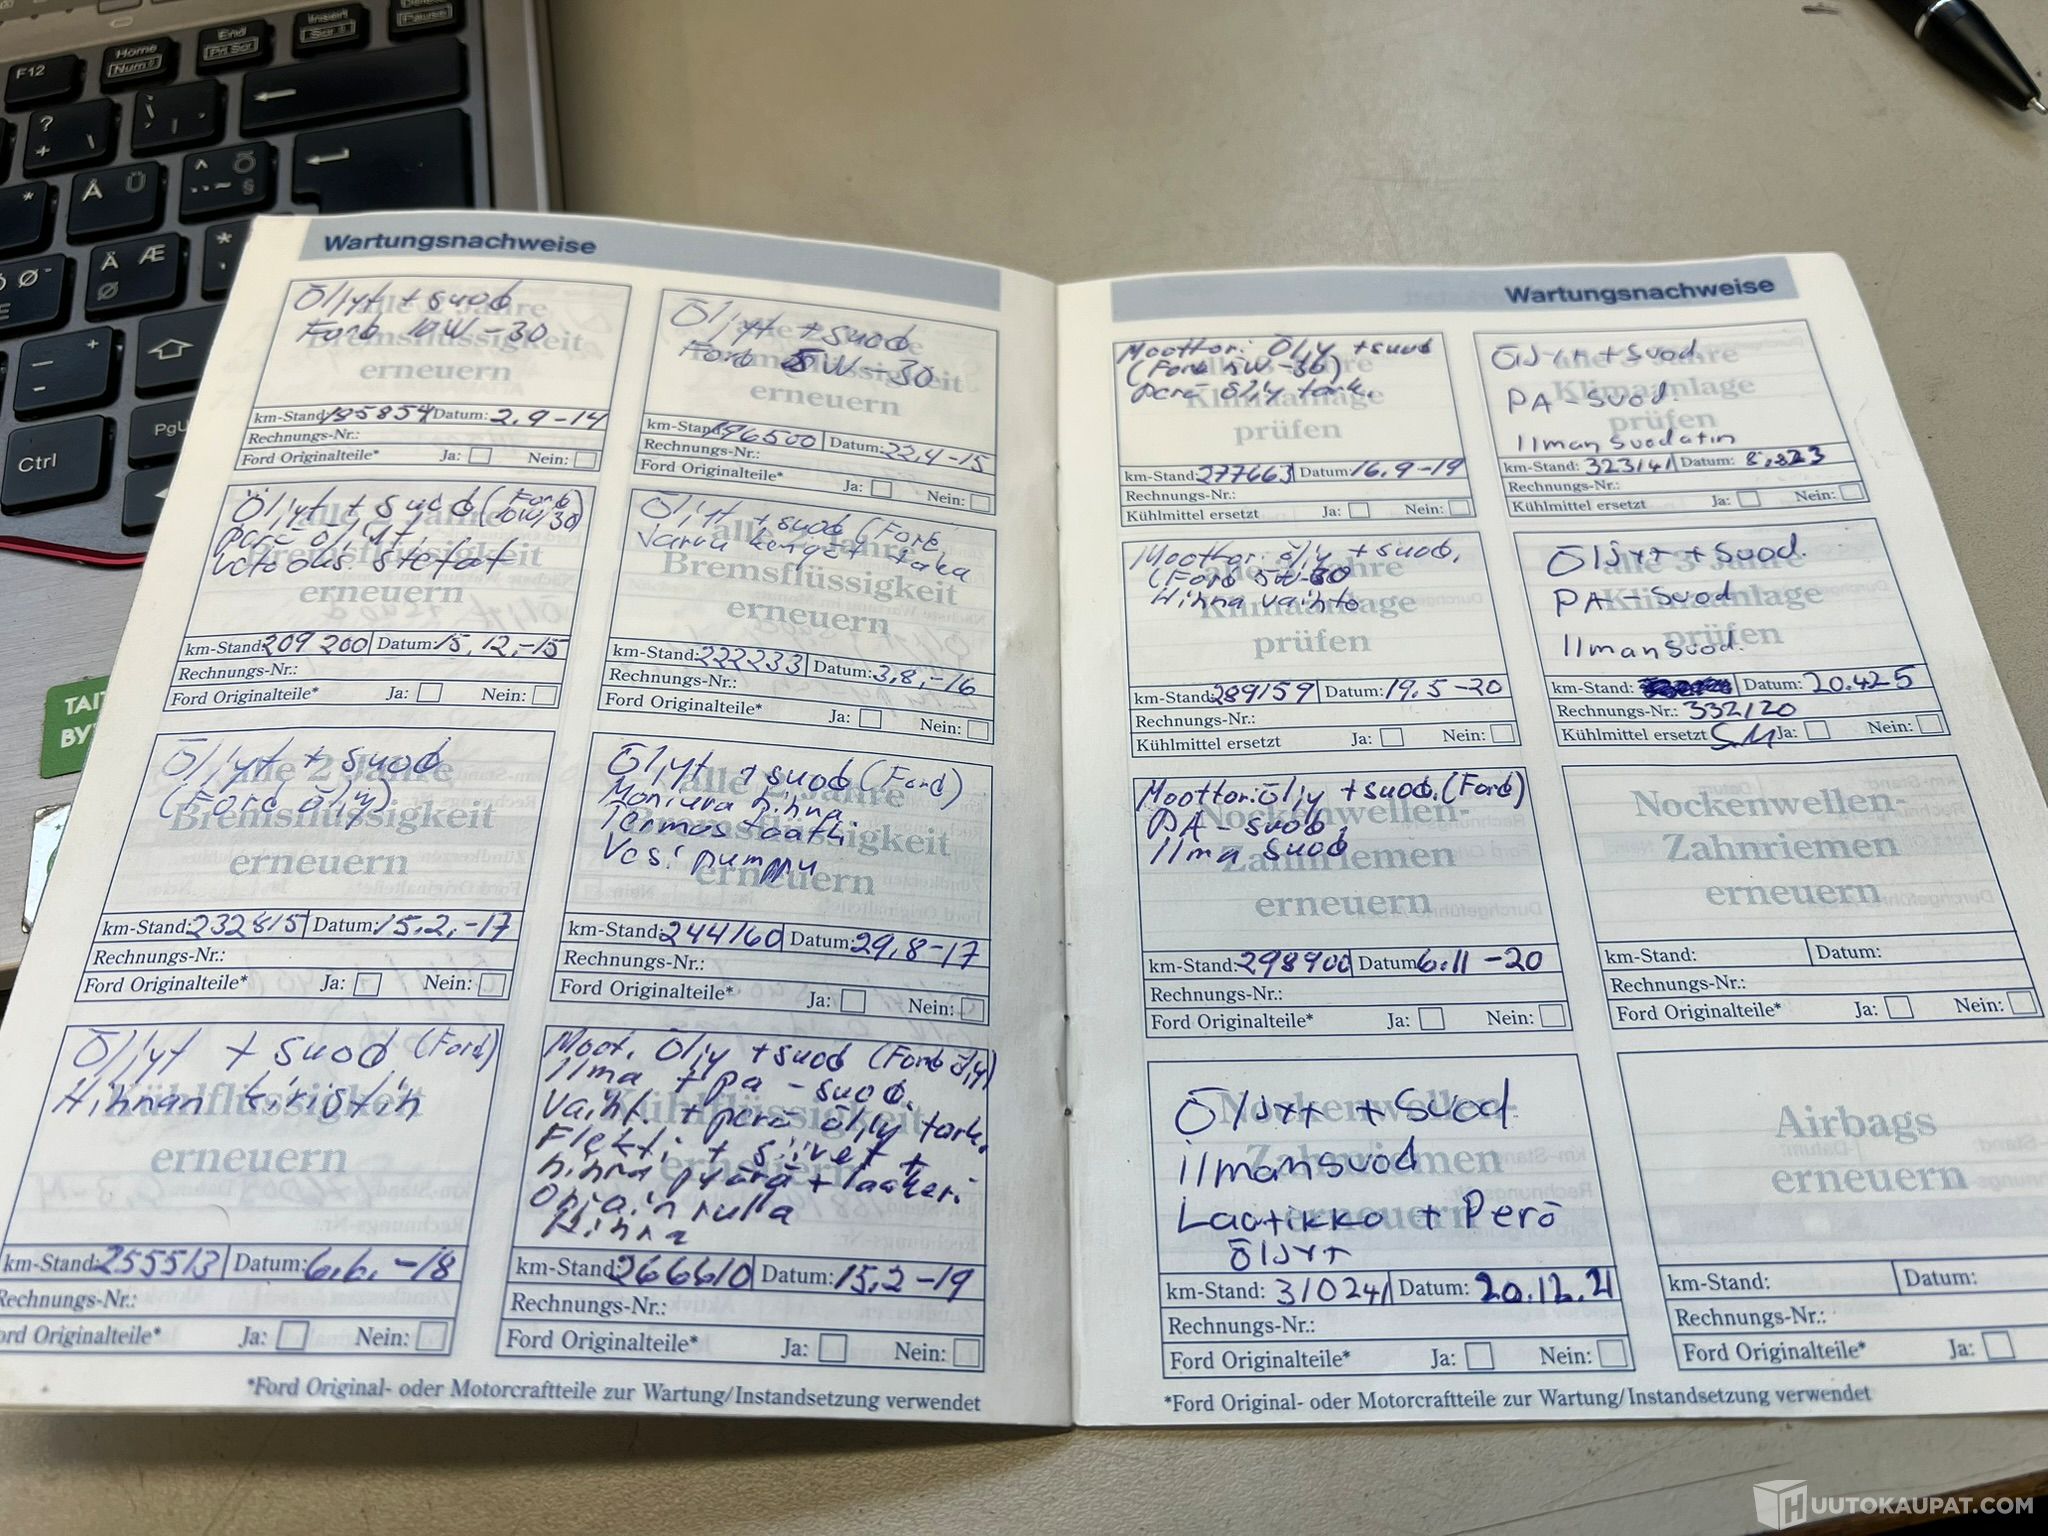 F12
Home
Num
End
Prt Scr
Insert
Scr
Pause
?
+ \
Å Ü
^ Õ
*
Ä Æ
*
Ø
-
+
PgU
Ctrl
TAIT
BY
Wartungsnachweise
Öljyt + suod
Ford 10W-30
alle 2 Jahre
Bremsflüssigkeit
erneuern
km-Stand: 195854 Datum: 2.9-14
Rechnungs-Nr.:
Ford Originalteile* Ja: Nein:
Öljyt + suod
Ford 5W-30
alle 2 Jahre
Bremsflüssigkeit
erneuern
km-Stand: 196500 Datum: 22.4-15
Rechnungs-Nr.:
Ford Originalteile* Ja: Nein:
Öljyt + suod (Ford
10W/30)
Perä öljyt,
Vetoaks. stefat
alle 2 Jahre
Bremsflüssigkeit
erneuern
km-Stand: 209 200 Datum: 15.12.-15
Rechnungs-Nr.:
Ford Originalteile* Ja: Nein:
Öljyt + suod (Ford
Jarru kengät taka
alle 2 Jahre
Bremsflüssigkeit
erneuern
km-Stand: 222233 Datum: 3,8,-16
Rechnungs-Nr.:
Ford Originalteile* Ja: Nein:
Öljyt + suod
(Ford öljy)
alle 2 Jahre
Bremsflüssigkeit
erneuern
km-Stand: 232815 Datum: 15.2.-17
Rechnungs-Nr.:
Ford Originalteile* Ja: Nein:
Öljyt + suod (Ford)
Moniura hihna
Termostaatti
Vesi pumppu
alle 2 Jahre
Bremsflüssigkeit
erneuern
km-Stand: 244160 Datum: 29,8-17
Rechnungs-Nr.:
Ford Originalteile* Ja: Nein:
Öljyt + suod (Ford)
Hihnan kiristin
Kühlflüssigkeit
erneuern
km-Stand: 255513 Datum: 6.6.-18
Rechnungs-Nr.:
Ford Originalteile* Ja: Nein:
Moot. öljy + suod (Ford öljy)
Ilma + pa-suod.
Vaiht. + perä öljy tark.
Flekti + siivet +
hihna pyörä + laakeri
Ohjain rulla
Hihna
Kühlflüssigkeit
erneuern
km-Stand: 266610 Datum: 15.2-19
Rechnungs-Nr.:
Ford Originalteile* Ja: Nein:
*Ford Original- oder Motorcraftteile zur Wartung/Instandsetzung verwendet
Wartungsnachweise
Moottori öljy + suod
(Ford 5W-30)
Perä öljy tark.
alle 3 Jahre
Klimaanlage
prüfen
km-Stand: 277663 Datum: 16.9-19
Rechnungs-Nr.:
Kühlmittel ersetzt Ja: Nein:
Öljyt + suod
PA-suod.
Ilman suodatin
alle 3 Jahre
Klimaanlage
prüfen
km-Stand: 323141 Datum:
Rechnungs-Nr.:
Kühlmittel ersetzt Ja: Nein:
Moottori öljy + suod.
(Ford 5W-30
Hihna vaihto
alle 3 Jahre
Klimaanlage
prüfen
km-Stand: 289159 Datum: 19.5-20
Rechnungs-Nr.:
Kühlmittel ersetzt Ja: Nein:
Öljyt + suod.
PA-suod
Ilmansuod.
alle 3 Jahre
Klimaanlage
prüfen
km-Stand: Datum: 20.4.25
Rechnungs-Nr.: 332120
Kühlmittel ersetzt SM Ja: Nein:
Moottoriöljy + suod. (Ford)
PA-suod.
Ilma suod
Nockenwellen-
Zahnriemen
erneuern
km-Stand: 298900 Datum: 6.11-20
Rechnungs-Nr.:
Ford Originalteile* Ja: Nein:
Nockenwellen-
Zahnriemen
erneuern
km-Stand: Datum:
Rechnungs-Nr.:
Ford Originalteile* Ja: Nein:
Öljyt + suod
ilmansuod
Laatikko + Perä
öljyt
Nockenwellen-
Zahnriemen
erneuern
km-Stand: 310241 Datum: 20.12.21
Rechnungs-Nr.:
Ford Originalteile* Ja: Nein:
Airbags
erneuern
km-Stand: Datum:
Rechnungs-Nr.:
Ford Originalteile* Ja:
*Ford Original- oder Motorcraftteile zur Wartung/Instandsetzung verwendet
HUUTOKAUPAT.COM